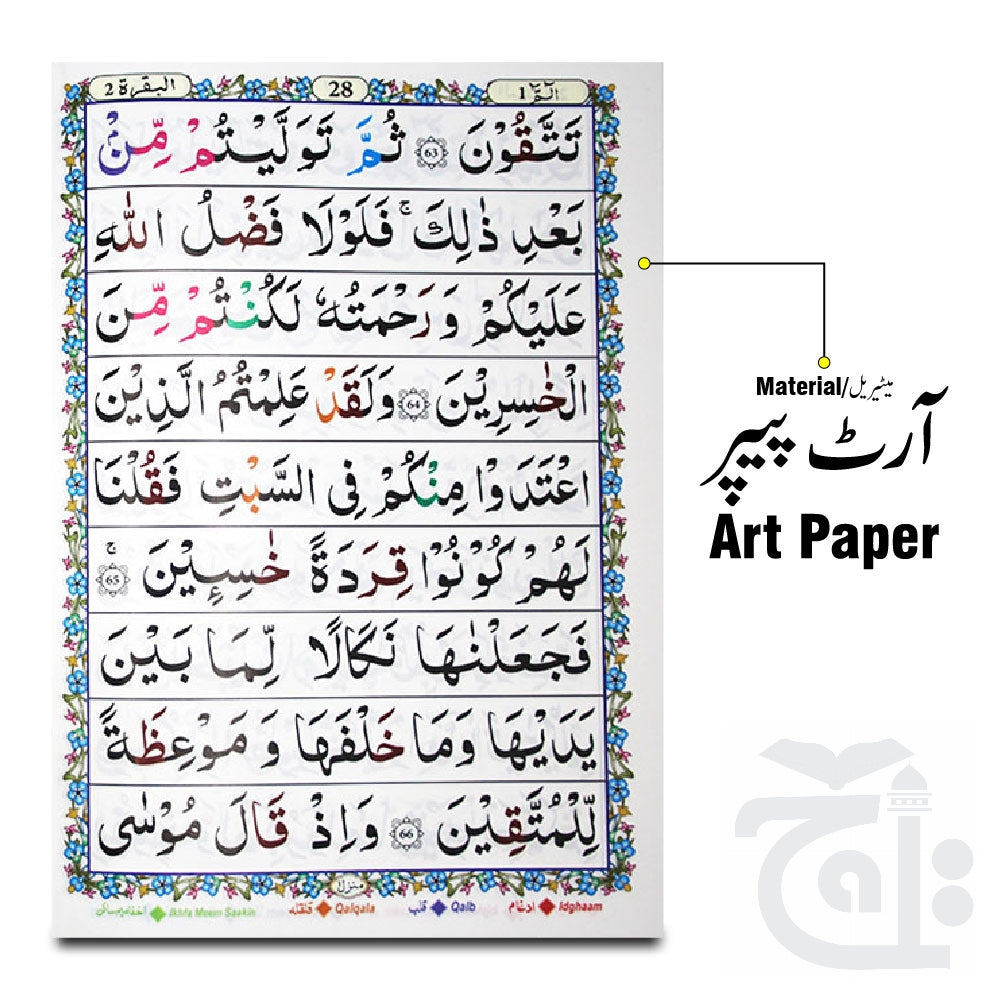 الٓمّٓ 1
28
البقرة 2
تَتَّقُوْنَ 63 ثُمَّ تَوَلَّيْتُمْ مِّنْۢ
بَعْدِ ذٰلِكَ ۚ فَلَوْلَا فَضْلُ اللّٰهِ
عَلَيْكُمْ وَرَحْمَتُهٗ لَكُنْتُمْ مِّنَ
الْخٰسِرِيْنَ 64 وَلَقَدْ عَلِمْتُمُ الَّذِيْنَ
اعْتَدَوْا مِنْكُمْ فِى السَّبْتِ فَقُلْنَا
لَهُمْ كُوْنُوْا قِرَدَةً خٰسِـِٕيْنَ ۚ 65
فَجَعَلْنٰهَا نَكَالًا لِّمَا بَيْنَ
يَدَيْهَا وَمَا خَلْفَهَا وَمَوْعِظَةً
لِّلْمُتَّقِيْنَ 66 وَاِذْ قَالَ مُوْسٰى
منزل
Idghaam ادغام Qalb قلب Qalqala قلقله Ikhfa Meem Saakin
Material/میٹیریل
آرٹ پیپر
Art Paper